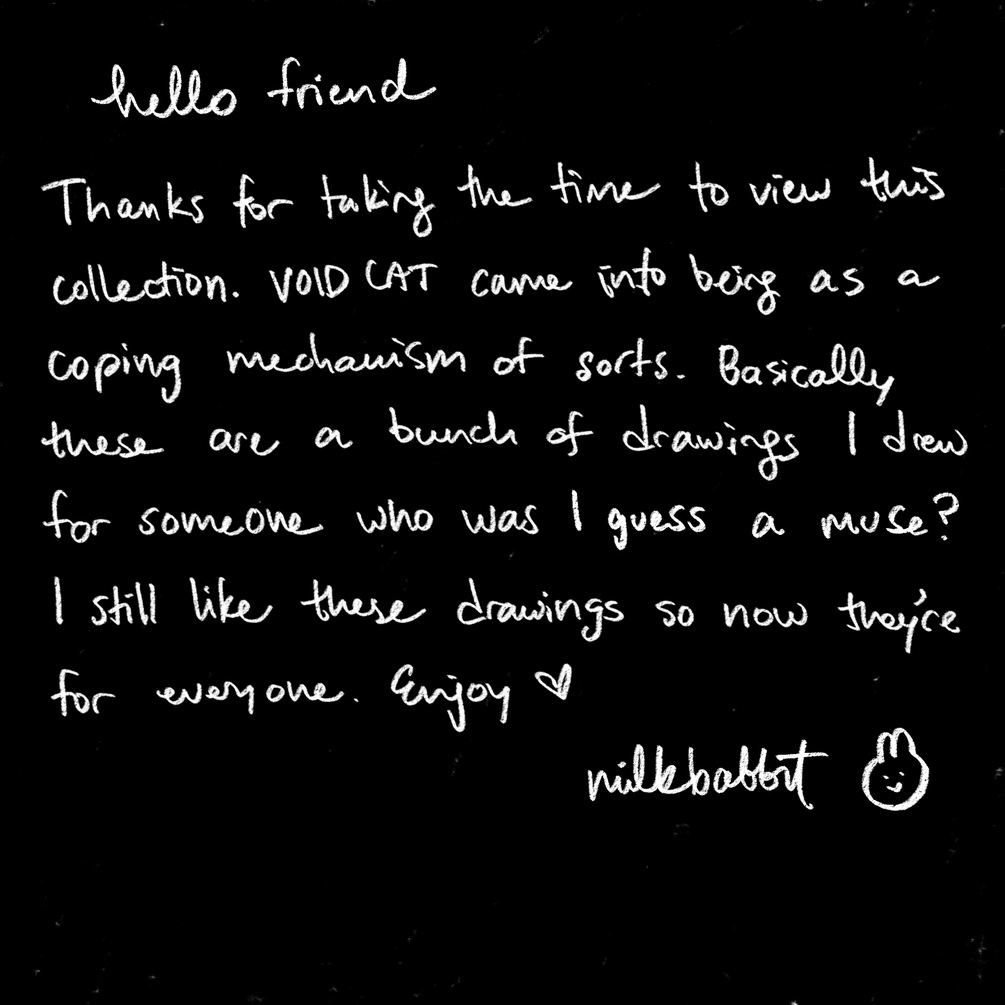 hello friend
Thanks for taking the time to view this
collection. VOID CAT came into being as a
coping mechanism of sorts. Basically
these are a bunch of drawings I drew
for someone who was I guess a muse?
I still like these drawings so now they're
for everyone. Enjoy ♡
milkbabbit